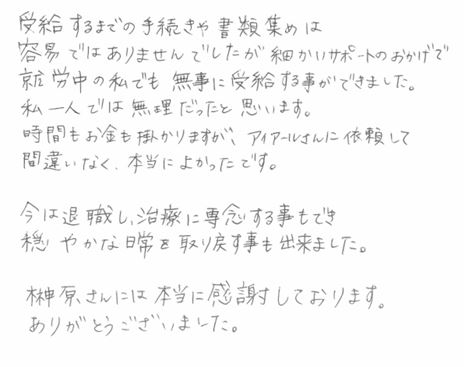 受給するまでの手続きや書類集めは
容易ではありませんでしたが細かいサポートのおかげで
就労中の私でも無事に受給する事ができました。
私一人では無理だったと思います。
時間もお金も掛かりますが、アイアールさんに依頼して
間違いなく、本当によかったです。
今は退職し、治療に専念する事もでき
穏やかな日常を取り戻す事も出来ました。
榊原さんには本当に感謝しております。
ありがとうございました。